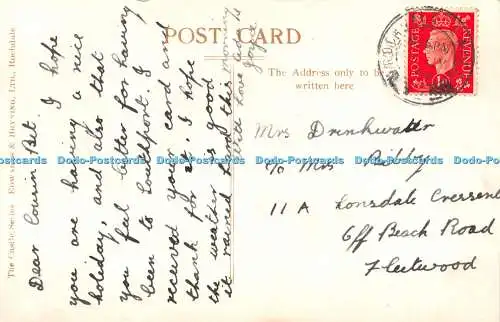 POST CARD
The Address only to be
written here
POSTAGE
REVENUE
1D
The Castle Series
LTD., Rochdale
Dear Cousin Bet. I hope
you are having a nice
holiday, and also that
you feel better for having
been to Southport. I
received your card and
thank for it. I hope
the weather is good
it rained here this morning
With Love from
Joyce
Mrs Drinkwater
c/o Mrs Bibby
11A Lonsdale Cressent
Off Beach Road
Fleetwood
Dodo-Postcards Dodo-Postcards Dodo-Postcards Dodo-Postcards Dodo-Postcards Dodo-Postcards